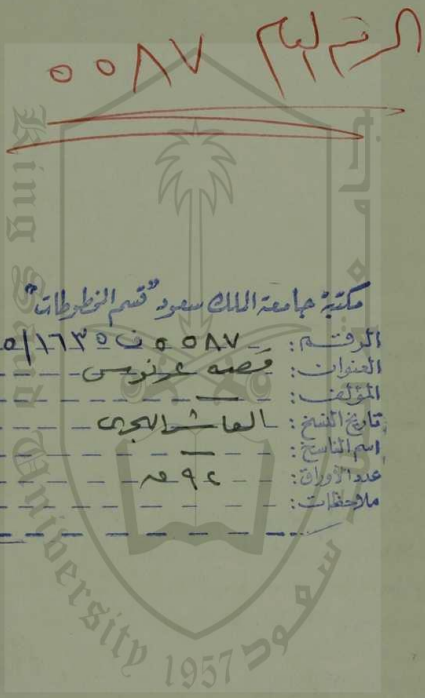 الرقم العام ٥٥٨٧
مكتبة جامعة الملك سعود "قسم المخطوطات"
الرقم: ٥٥٨٧ ف ١٦٣٥/٥
العنوان: قصه عرنوس
المؤلف: ــ
تاريخ النسخ: العاشر الهجري
اسم الناسخ: ــ
عدد الأوراق: ٩٢ ص
ملاحظات:
King Saud University
جامعة الملك سعود
1957